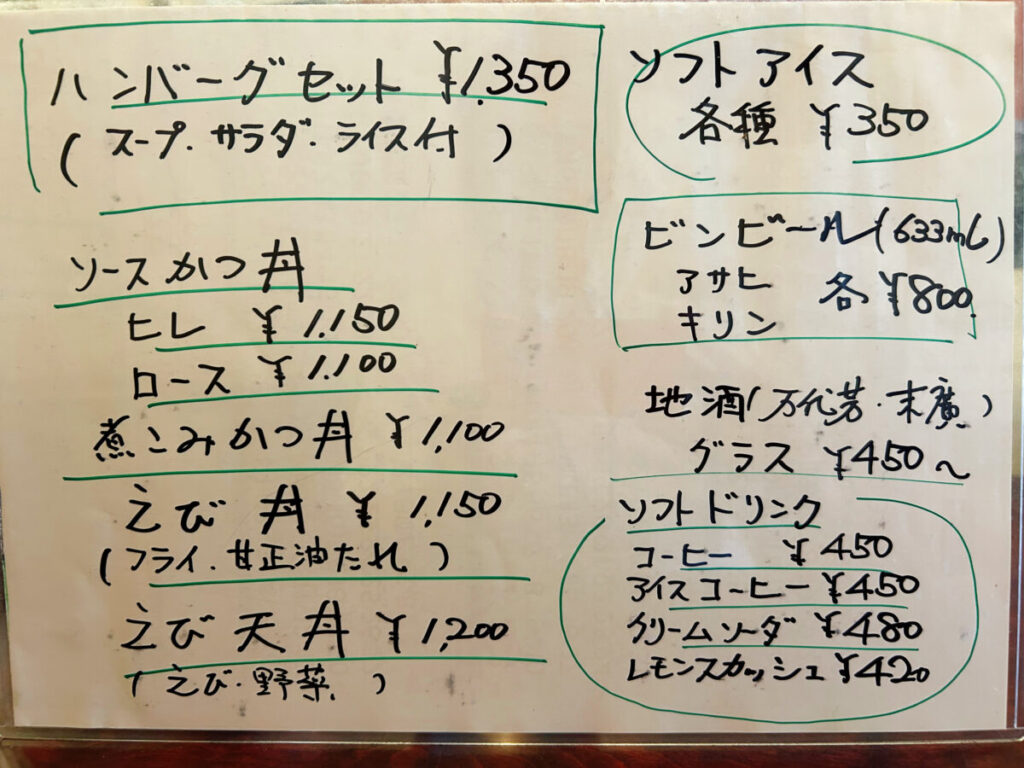 ハンバーグセット ¥1,350
(スープ.サラダ・ライス付)
ソースかつ丼
ヒレ ¥1,150
ロース ¥1,100
煮こみかつ丼 ¥1,100
えび丼 ¥1,150
(フライ.甘正油たれ)
えび天丼 ¥1,200
(えび・野菜)
ソフトアイス
各種 ¥350
ビンビール(633ml)
アサヒ
キリン
各 ¥800
地酒(万代芳・末廣)
グラス ¥450~
ソフトドリンク
コーヒー ¥450
アイスコーヒー ¥450
クリームソーダ ¥480
レモンスカッシュ ¥420